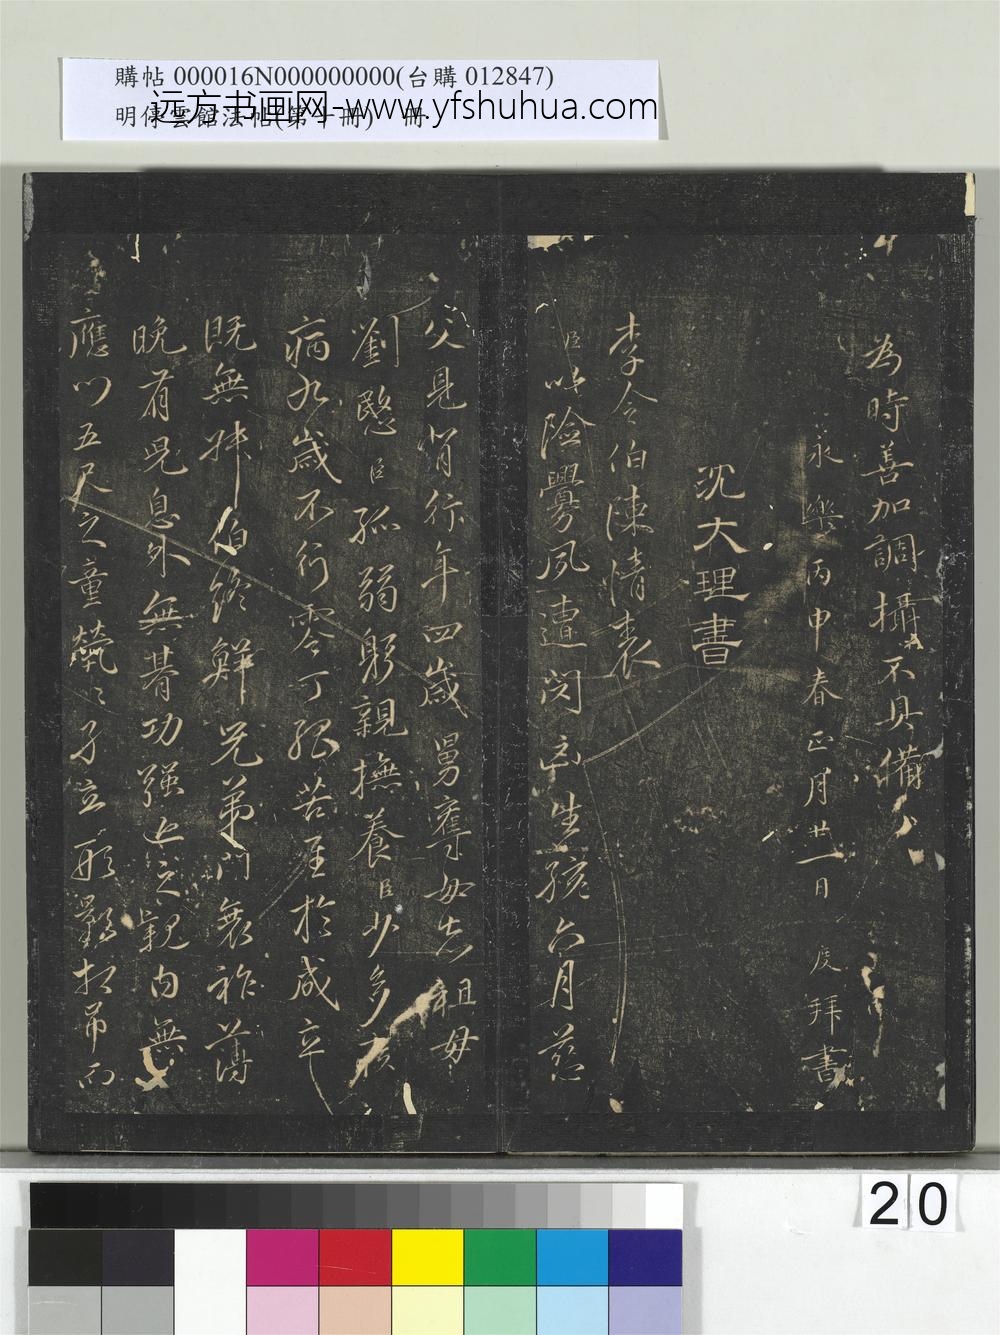 購帖 000016N000000000(台購 012847)
明停雲館法帖(第十冊) 冊
远方书画网-www.yfshuhua.com
為時善加調攝不具備
永樂丙申春正月廿一日 度拜書
沈大理書
李令伯陳情表
臣以險釁夙遭閔凶生孩六月慈
父見背行年四歲舅奪母志祖母
劉愍臣孤弱躬親撫養臣少多疾
病九歲不行零丁孤苦至於成立
既無叔伯終鮮兄弟門衰祚薄
晚有兒息外無朞功強近之親內無
應門五尺之童煢〻孑立形影相弔而
20